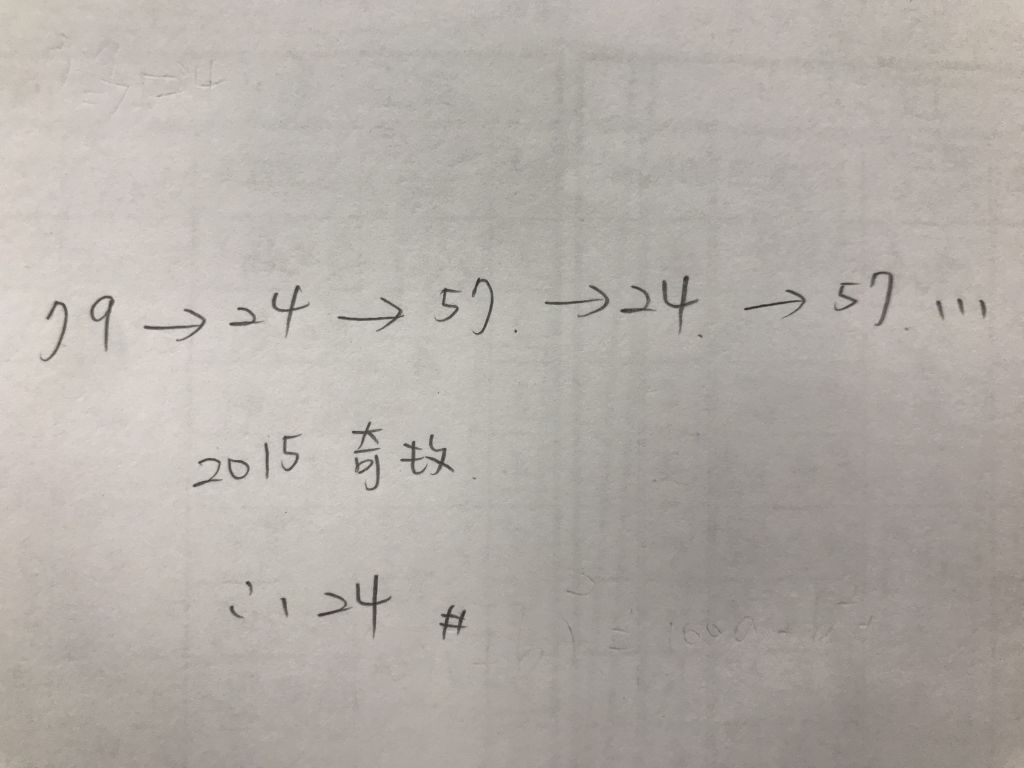 79 → 24 → 57. → 24. → 57. ...
2015 奇数
∴ 24 #